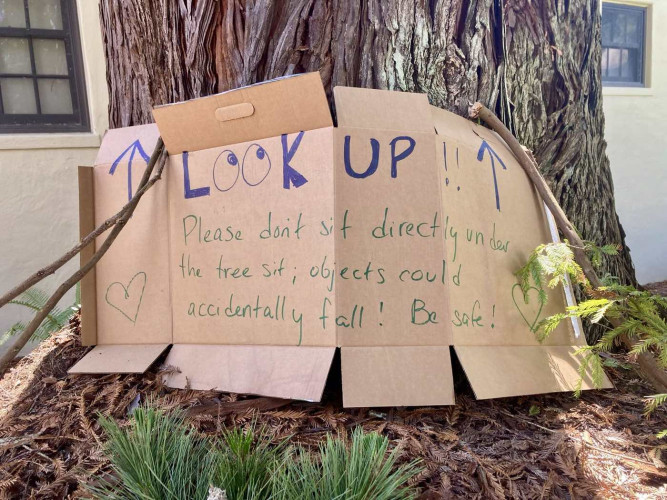 LOOK UP !!
Please don't sit directly under
the tree sit; objects could
accidentally fall! Be safe!